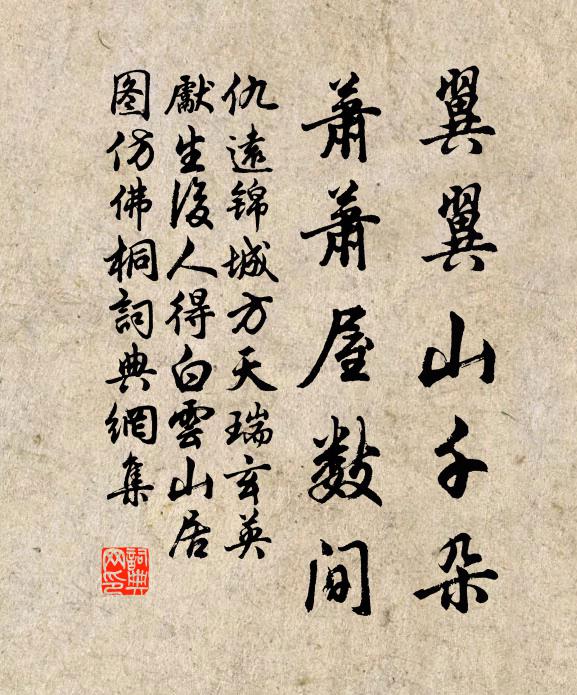 翼翼山千朵
萧萧屋数间
仇遠锦城方天瑞玄英
獻生後人得白雲山居
图仿佛桐詞典網集
詞典网印